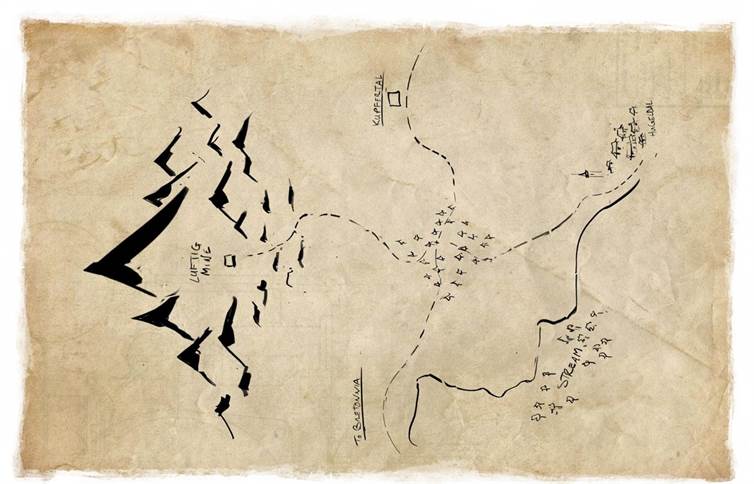 LUFTIG
MINE
To BRETONNIA
KUPFERTAL
STREAM
HUGELDAL